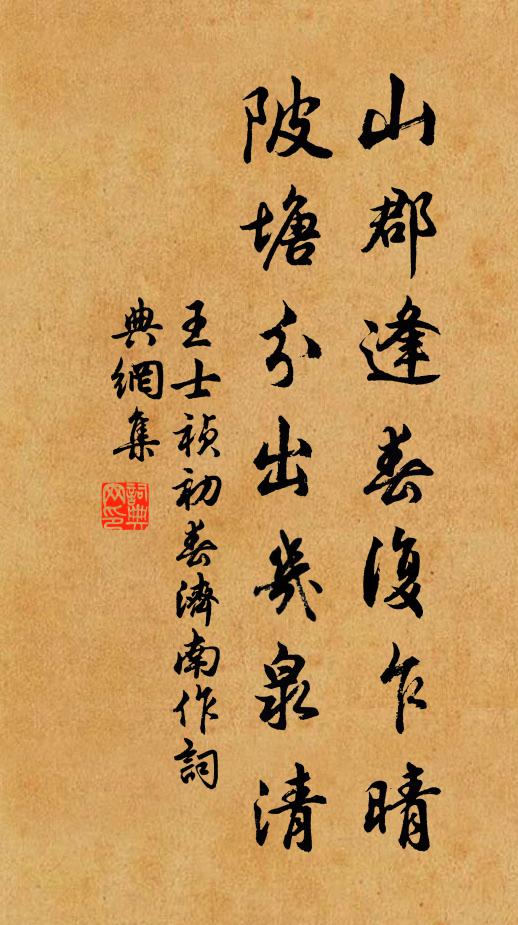 山郡逢春復乍晴
陂塘分出幾泉清
王士禎初春濟南作詞
典網集
詞典網印